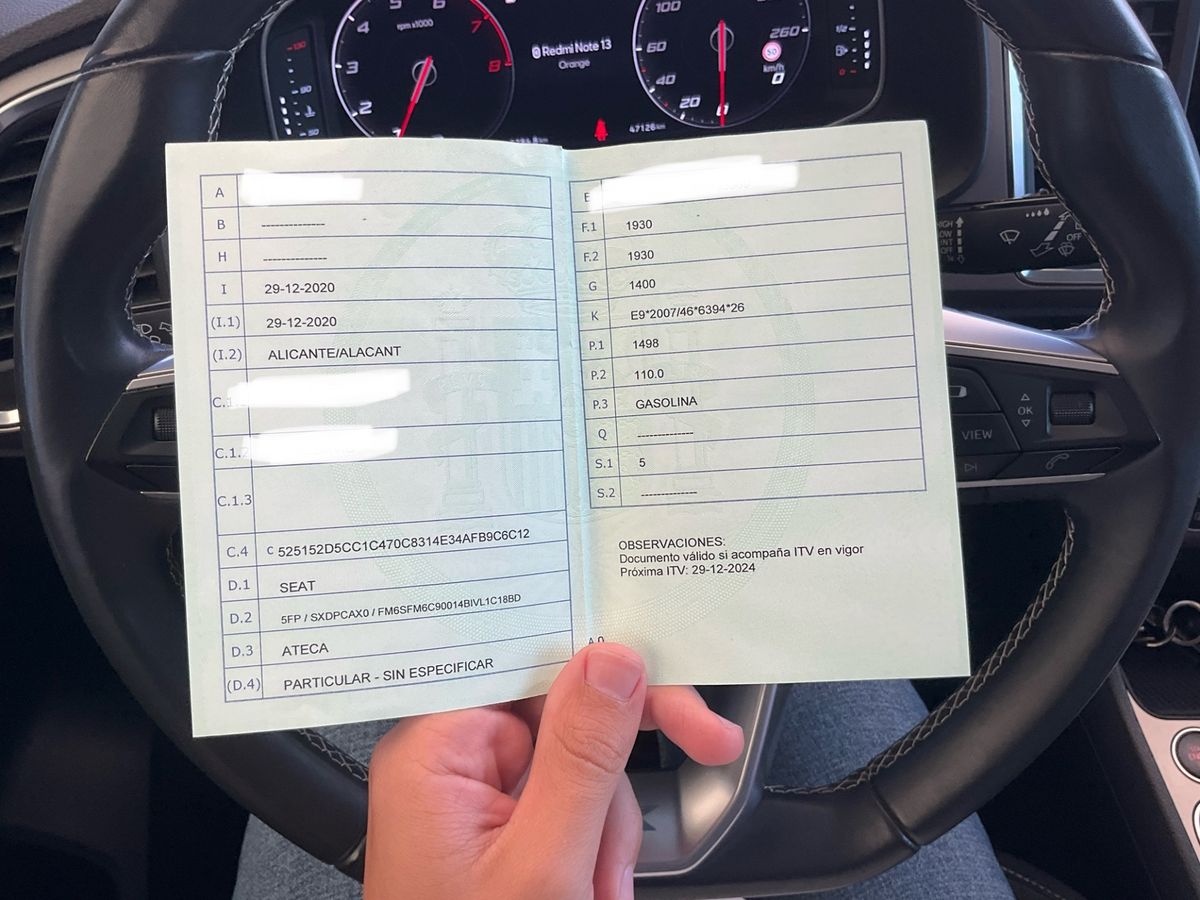 4 5 6 7
rpm x1000
3 8
2
130
90
50
Redmi Note 13
Orange
100
60
40
20
0
260
50
km/h
0
1/2
0
47126 km
HIGH
LOW
INT
OFF
1x
OFF
A
B --------------
H --------------
I 29-12-2020
(I.1) 29-12-2020
(I.2) ALICANTE/ALACANT
C.1.2
C.1.3
C.4 C 525152D5CC1C470C8314E34AFB9C6C12
D.1 SEAT
D.2 5FP / SXDPCAX0 / FM6SFM6C90014BIVL1C18BD
D.3 ATECA
(D.4) PARTICULAR - SIN ESPECIFICAR
E
F.1 1930
F.2 1930
G 1400
K E9*2007/46*6394*26
P.1 1498
P.2 110.0
P.3 GASOLINA
Q --------------
S.1 5
S.2 --------------
OBSERVACIONES:
Documento válido si acompaña ITV en vigor
Próxima ITV: 29-12-2024
OK
VIEW